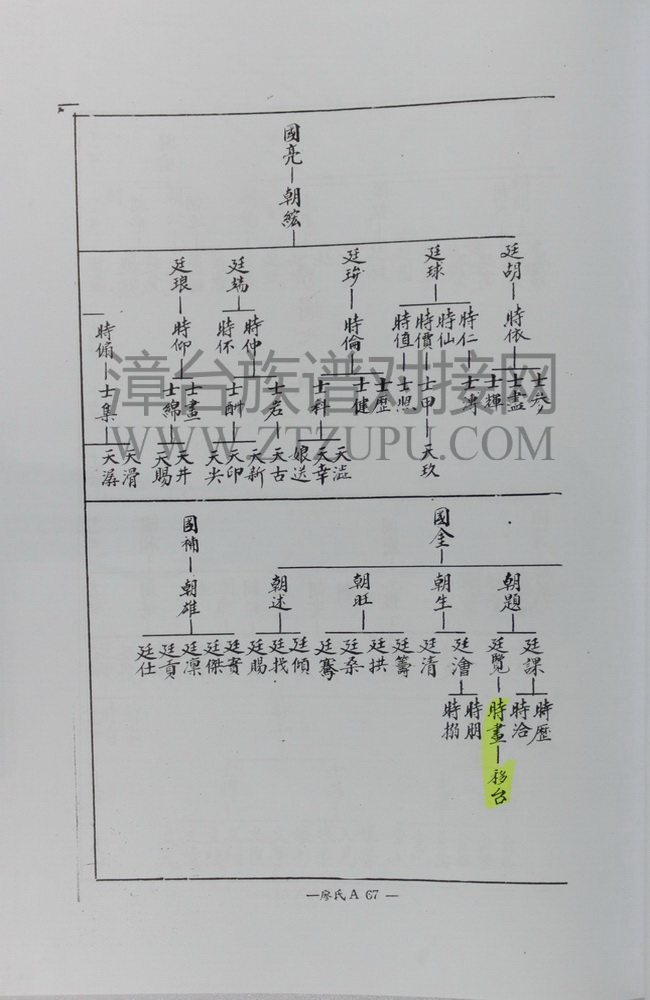 國亮
朝綋
廷胡
廷球
廷瑞
廷琅
時依
時仁
時仙
時價
時值
時倫
時仲
時伓
時仰
時備
士参
士盡
士輝
士專
士甲
士照
士歷
士健
士科
士岩
士酎
士畫
士綿
士集
天玖
天澁
天幸
娘送
天古
天新
天印
天尖
天井
天賜
天滑
天潺
國金
國補
朝題
朝生
朝旺
朝述
朝雄
廷課
廷覽
廷澮
廷清
廷籌
廷拱
廷桑
廷騫
廷傾
廷找
廷賜
廷賓
廷傑
廷凛
廷貢
廷仕
時歷
時洽
時畫
時朋
時搦
移台
漳台族谱对接网
WWW.ZTZUPU.COM
—廖氏A 67—